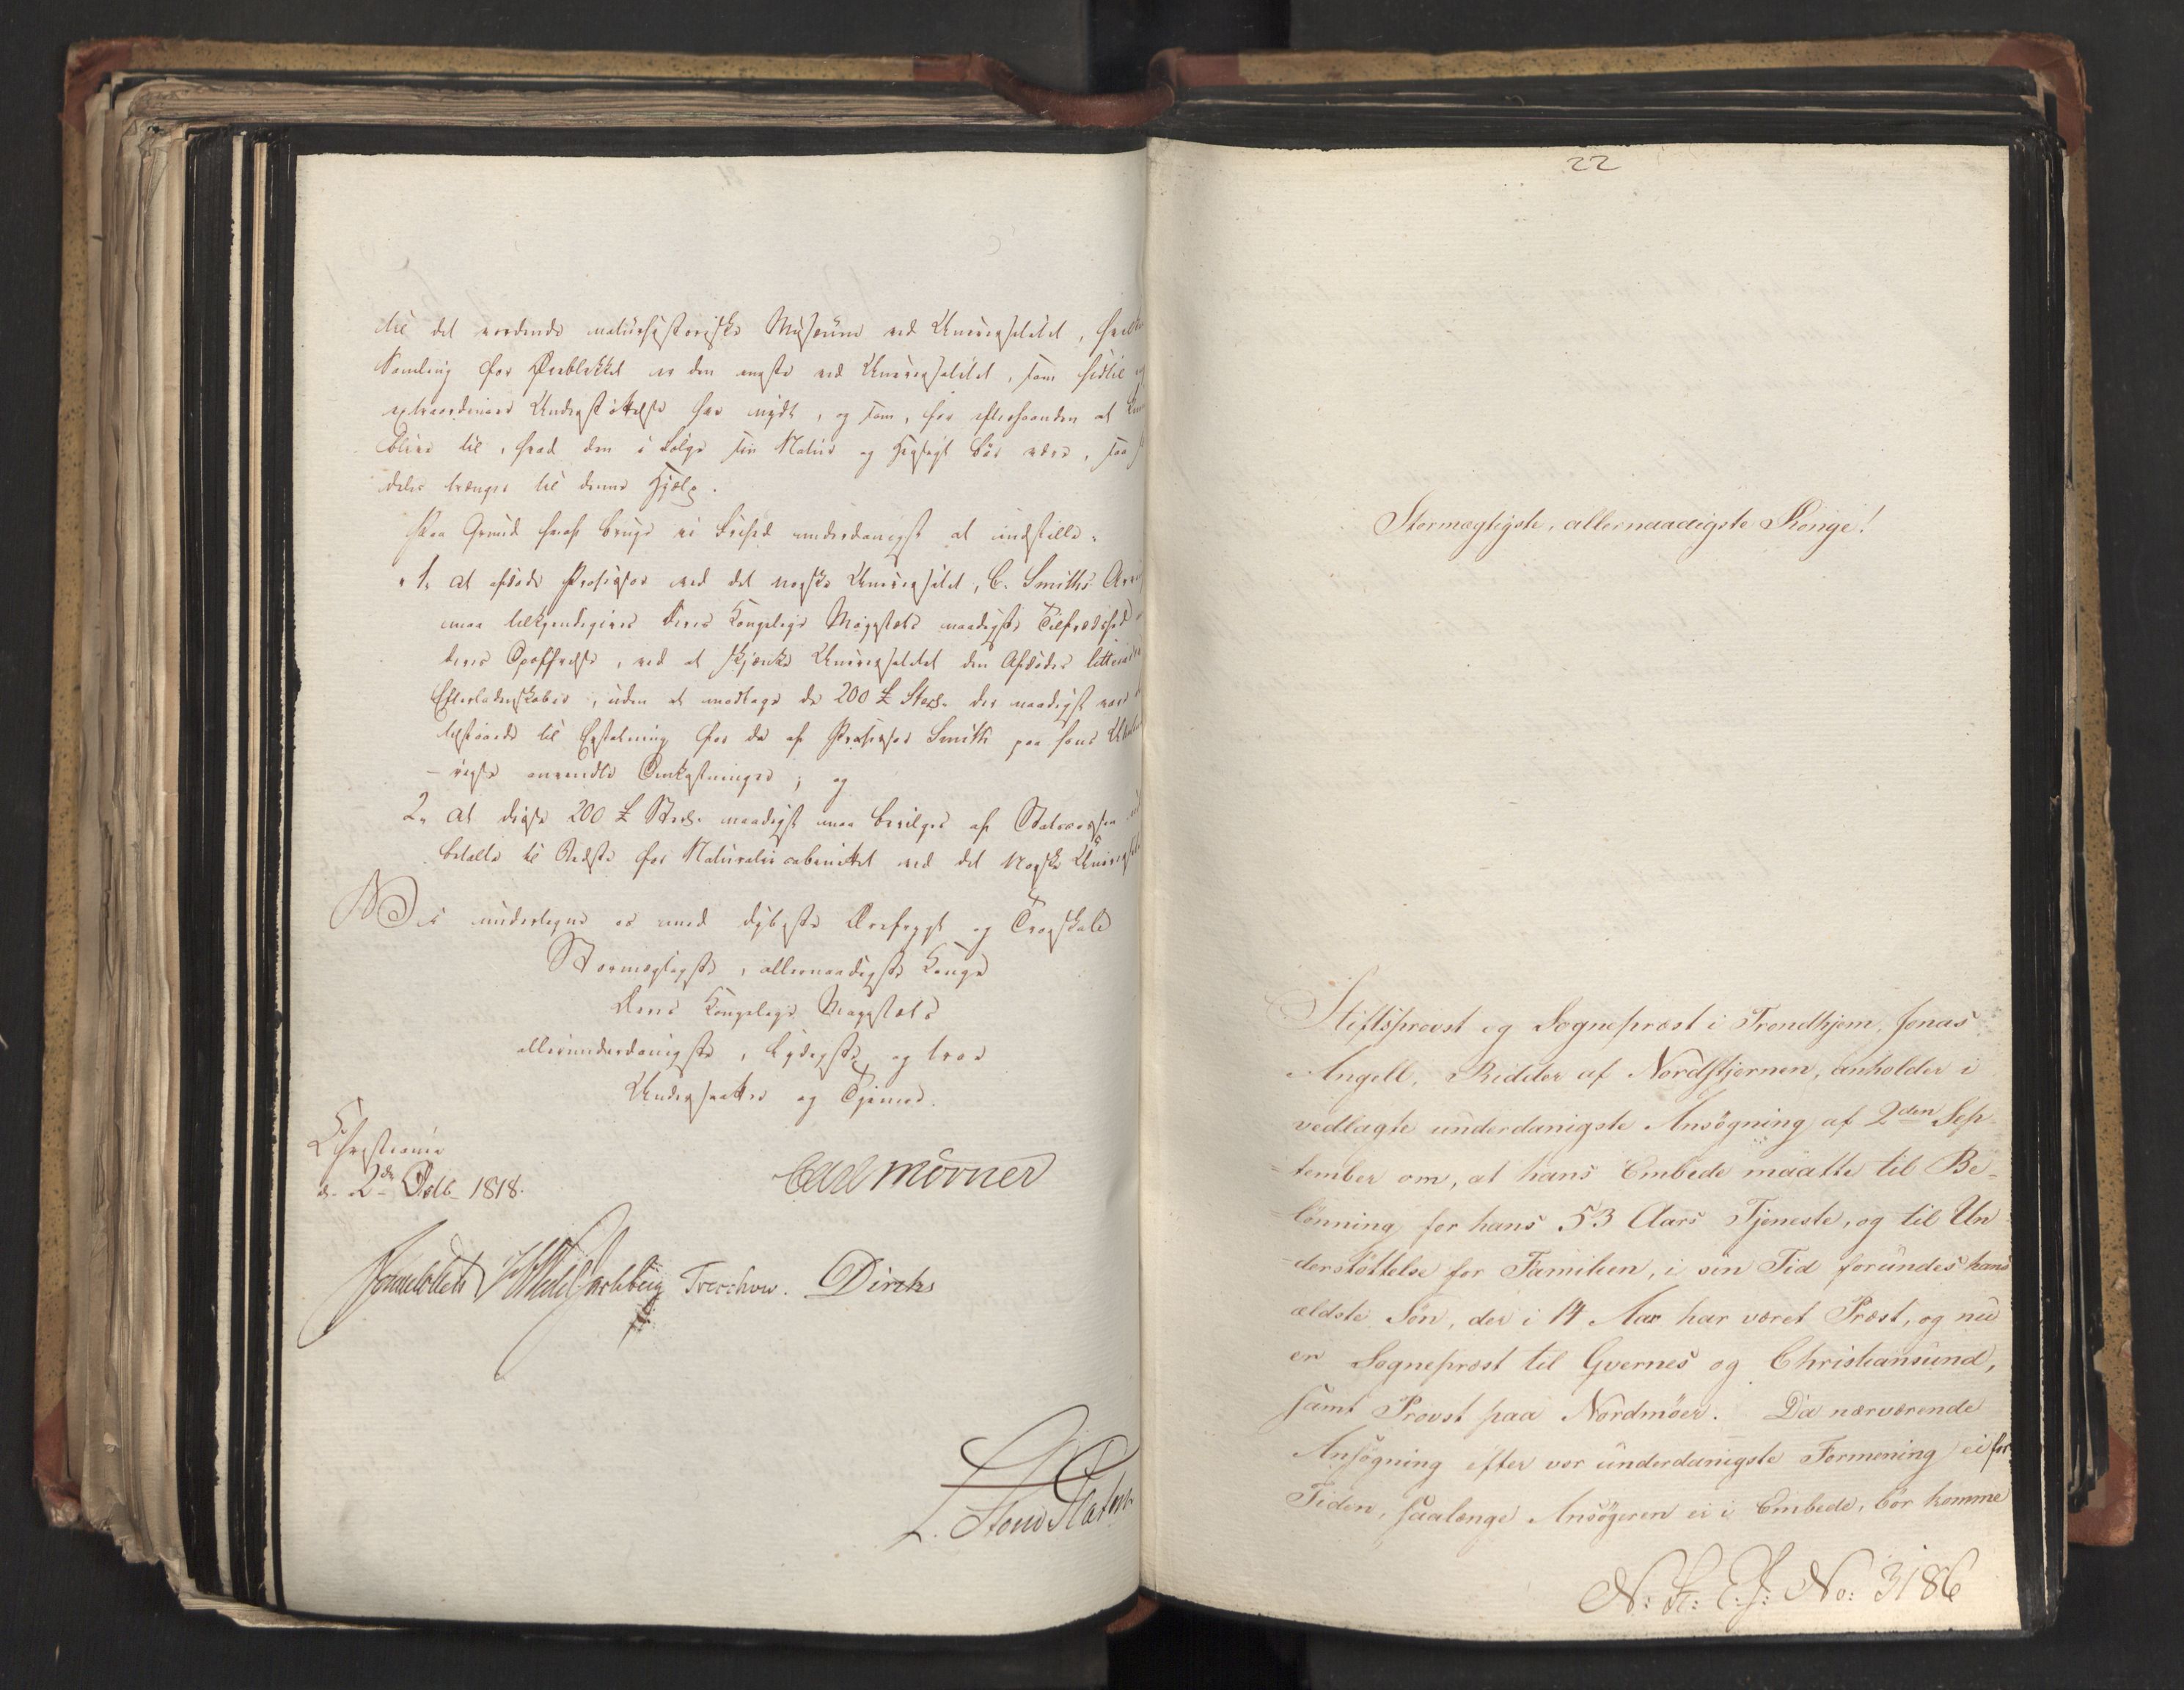 til det vordende naturhistoriske Museum ved Universitetet,
Samling for Øieblikket er den eneste ved Universitetet, som hidtil
extraordinær Understøttelse har nydt, og som, for efterhaanden at
blive til, hvad den i Følge sin Natur og Hensigt bør være, saa
deles trænger til denne Hjelp.
Paa Grund heraf bruge vi Frihed underdanigst at indstille:
1. at afdøde Professor ved det norske Universitet, C. Smiths
maa tilkjendegives Deres Kongelige Majestæts naadigste Tilfredshed
deres Opoffrelse, ved at skjenke Universitetet den Afdødes
Efterladenskaber, uden at modtage de 200 £ Sterl. der naadigst
tilstaaede til Erstatning for de af Professor Smith paa hans
reise anvendte Omkostninger; og
2. at disse 200 £ Sterl. naadigst maa bevilges af Statscassen
betalte til Bedste for Naturaliecabinettet ved det Norske
Vi undertegne os med dybeste Ærefrygt og Troskab
Stormægtigste, allernaadigste Konge
Deres Kongelige Majestæts
allerunderdanigste, lydigste og troe
Undersaatter og Tjenere.
Christiania
d. 2de Octb. 1818.
Carl Mörner
Sommerhielm Wedel Jarlsberg Treschow. Diriks
L. Stoud Platou
22
Stormægtigste, allernaadigste Konge!
Stiftsprovst og Sognepræst i Trondhjem, Jonas
Angell, Ridder af Nordstjernen, anholder i
vedlagte underdanigste Ansøgning af 2den Sep-
tember om, at hans Embede maatte til Be-
lønning for hans 53 Aars Tjeneste, og til Un-
derstøttelse for Familien, i sin Tid forundes hans
ældste Søn, der i 14 Aar har været Præst, og nu
er Sognepræst til Qvernes og Christiansund,
samt Provst paa Nordmøer. Da nærværende
Ansøgning efter vor underdanigste Formening ei for
Tiden, saalænge Ansøgeren er i Embede, bør komme
No: 3186